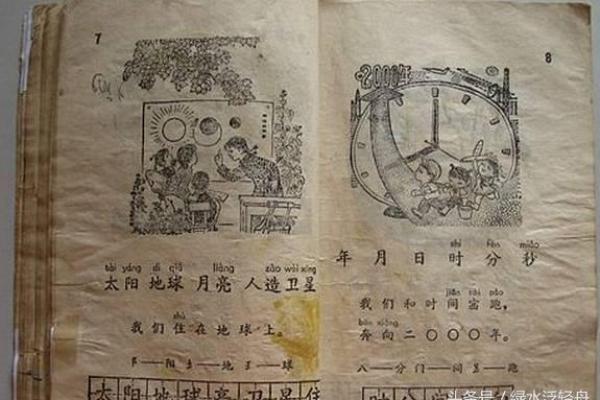 7
tài yáng dì qiú liàng zào wèi xīng
太阳 地球 月亮 人造卫星
zhù
我们住在地球上。
阝——阳 土——地 王——球
太阳地球亮卫星住
8
2000年
shí fēn miǎo
年 月 日 时 分 秒
jiān sài pǎo
我们和时间赛跑，
bēn xiàng
奔向二〇〇〇年。
八——分 门——间 𧾷——跑
头条号／绿水泛轻舟